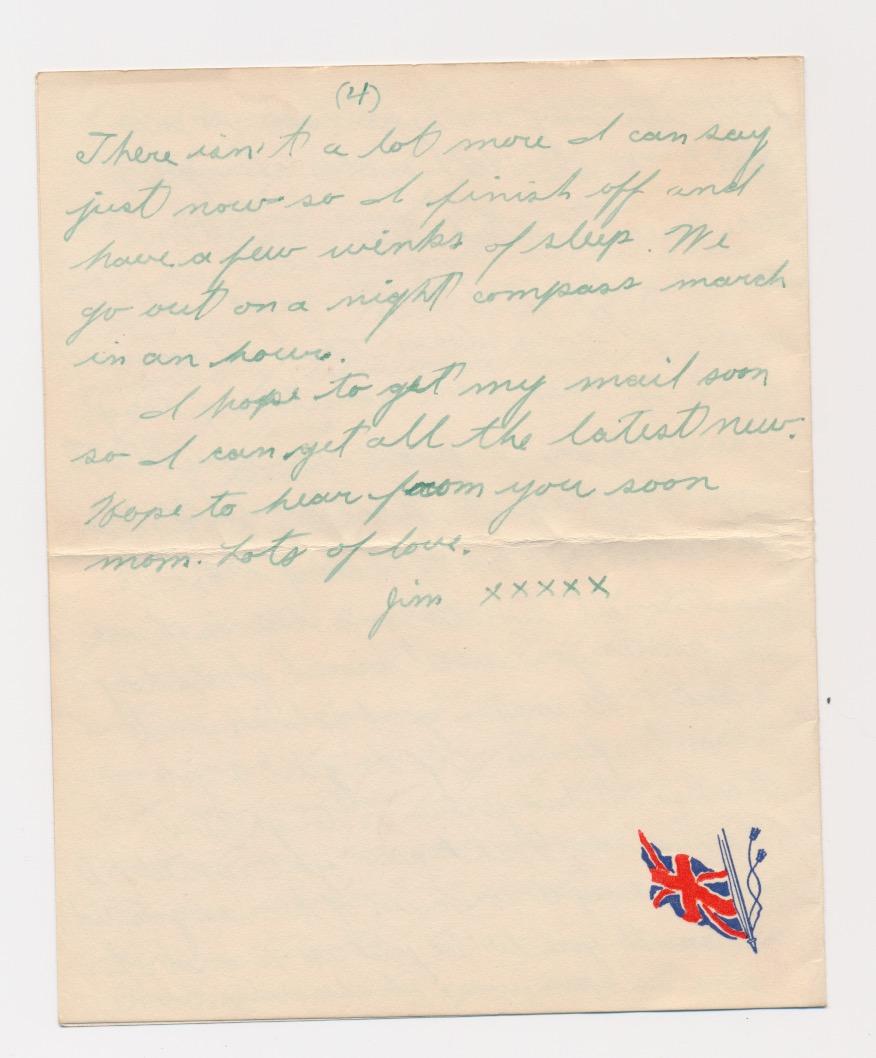 (4)
There isn't a lot more I can say
just now so I finish off and
have a few winks of sleep. We
go out on a night compass march
in an hour.
I hope to get my mail soon
so I can get all the latest new.
Hope to hear from you soon
mom. Lots of love.
Jim xxxxx